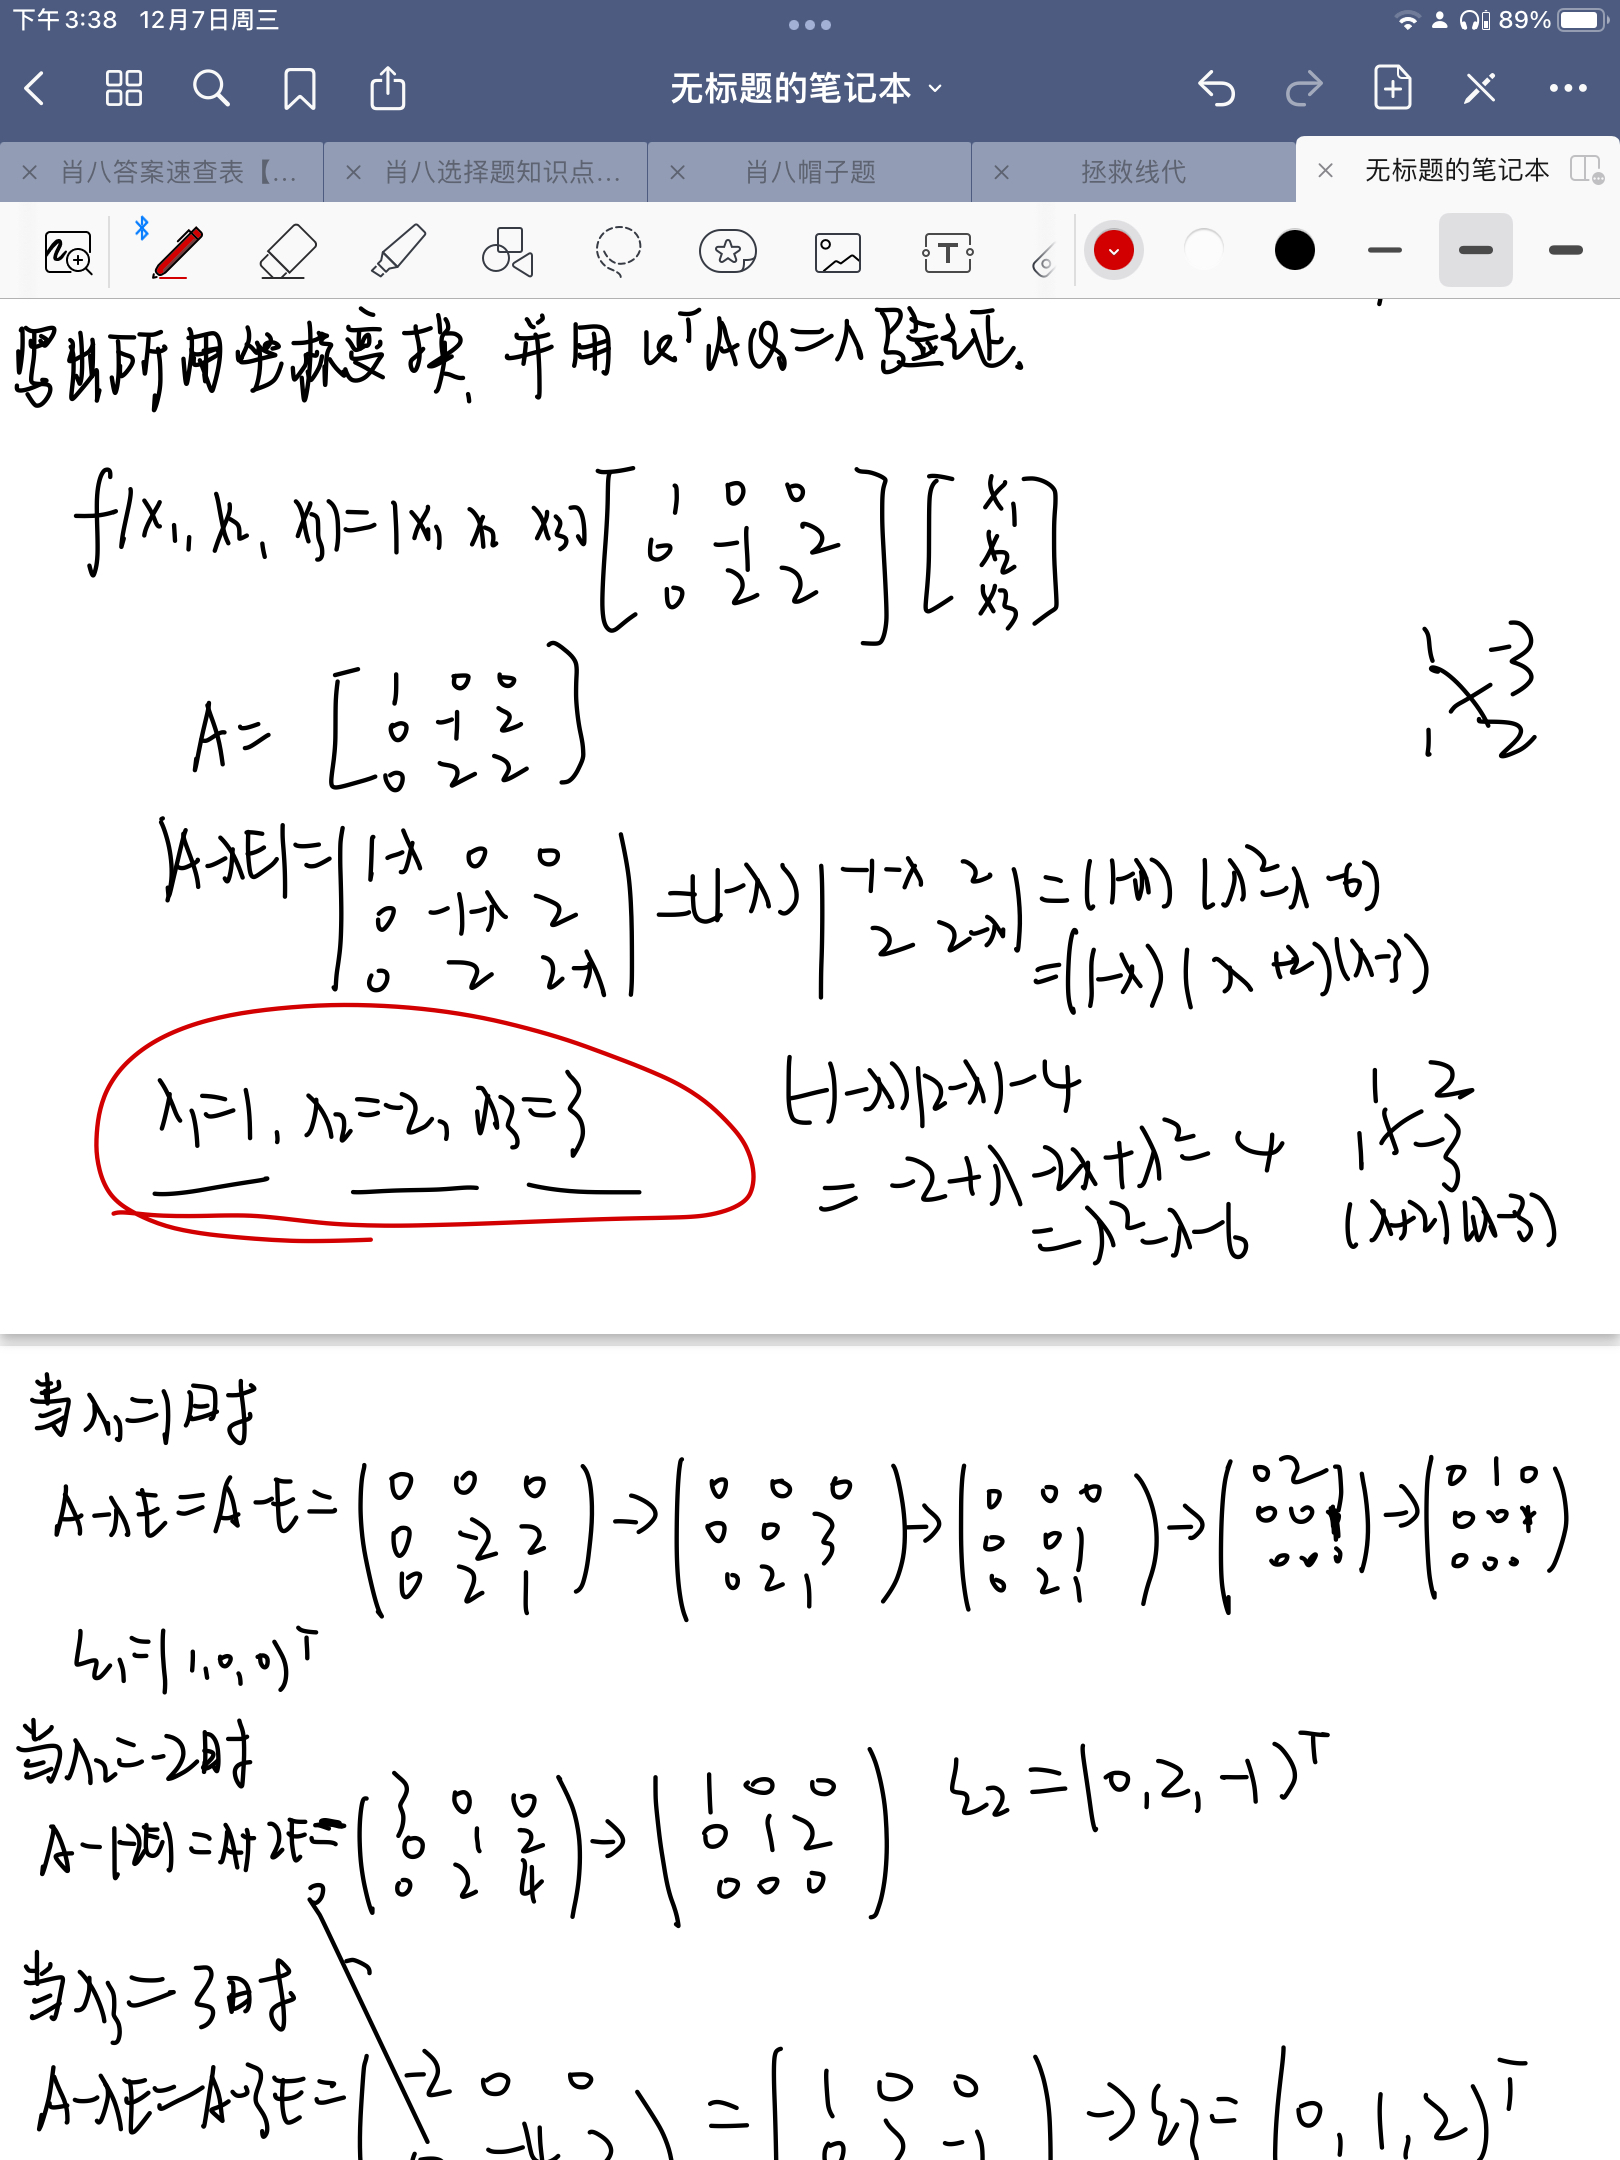 下午3:38 12月7日周三 89%
无标题的笔记本
肖八答案速查表【... 肖八选择题知识点... 肖八帽子题 拯救线代 无标题的笔记本
写出所用坐标变换, 并用 Q^T A Q = Λ 验证.
f(x₁, x₂, x₃) = (x₁ x₂ x₃) [1 0 0; 0 -1 2; 0 2 2] [x₁; x₂; x₃]
1 -3
1 2
A = [1 0 0; 0 -1 2; 0 2 2]
|A-λE| = |1-λ 0 0; 0 -1-λ 2; 0 2 2-λ| = (1-λ) |-1-λ 2; 2 2-λ| = (1-λ)(λ²-λ-6)
= (1-λ)(λ+2)(λ-3)
λ₁=1, λ₂=-2, λ₃=3
(-1-λ)(2-λ)-4
= -2+λ-2λ+λ²-4
= λ²-λ-6
1 2
1 -3
(λ+2)(λ-3)
当λ₁=1时
A-λE = A-E = (0 0 0; 0 -2 2; 0 2 1) → (0 0 0; 0 0 3; 0 2 1) → (0 0 0; 0 0 1; 0 2 1) → (0 2 1; 0 0 1; 0 0 0) → (0 1 0; 0 0 1; 0 0 0)
ξ₁ = (1, 0, 0)^T
当λ₂=-2时
A-(-2E) = A+2E = (3 0 0; 0 1 2; 0 2 4) → (1 0 0; 0 1 2; 0 0 0) ξ₂ = (0, 2, -1)^T
当λ₃=3时
A-λE = A-3E = (-2 0 0; 0 -4 2 = (1 0 0; 0 2 -1 → ξ₃ = (0, 1, 2)^T